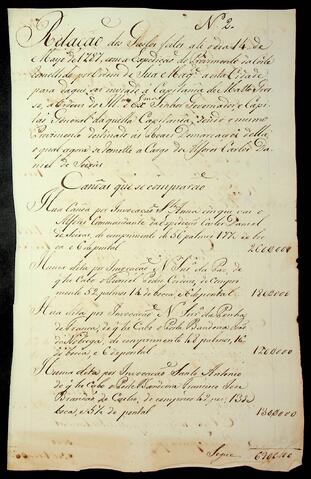 N.º 2.
Relação dos Gastos feitos athe o dia 14 de
Mayo de 1787. com a Expedição do Provimento da Corte
remetido por ordem de Sua Mag.e a esta Cidade
para daqui ser enviado á Capitania de Matto Gros-
so, a Ordem do Ill.mo e Ex.mo Senhor Governador, e Capi-
tão General daquella Capitania, sendo o mesmo
Provimento destinado ás Reaes Demarcaçoens della,
o qual agora se remette a Cargo do Alferes Carlos Da-
niel de Seixas
Canôas que se comprarão
Hua Canôa por Invocação S.ta Anna em que vai o
Alferes Commandante da Expedição Carlos Daniel
de Seixas, de comprimento de 56 palmos
ca e 6 de pontal 200$000
Huma dita por Invocação N. Snr.a da Paz, de
q he Cabo
mento 52 palmos 14 de boca e 6 de pontal 180$000
Hua dita por Invocação N. Snr.a da Penha
de França, de q he Cabo o Porta Bandeira João
da Nobrega, de comprimento 48 palmos, 16
de boca, e 6 de pontal 120$000
Huma dita por Invocação Santo Antonio
de q he Cabo o Porta Bandeira Francisco Jose
de Castro, de comprim.to 42 p.es, 13 de
boca, e 5½ de pontal 130$000
Segue